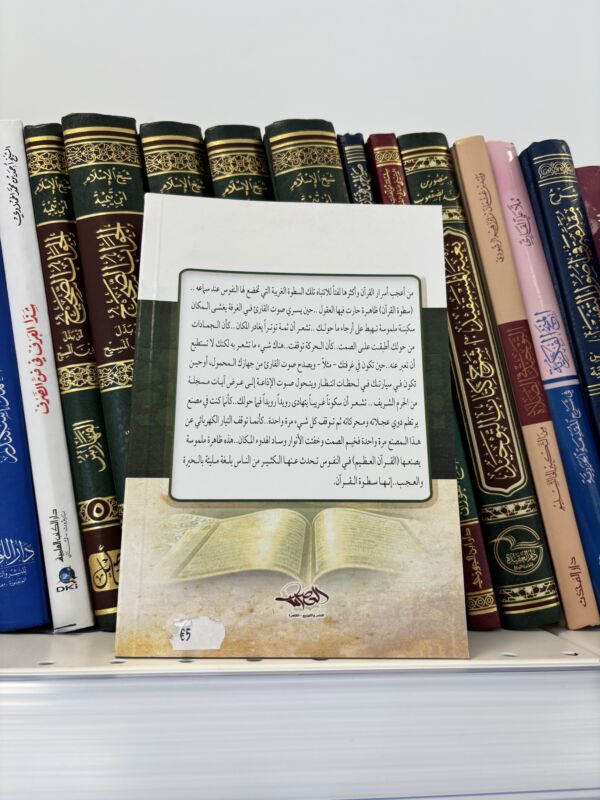 من أعجب أسرار القرآن وأكثرها لفتاً للانتباه تلك السطوة الغريبة التي تخضع لها النفوس عند سماعه ..
(سطوة القرآن) ظاهرة حارت فيها العقول ..حين يسري صوت القارئ في الغرفة يغشى المكان
سكينة ملموسة تهبط على أرجاء ما حولك .. تشعر أن ثمة توتراً يغادر المكان ..كأن الجمادات
من حولك أطبقت على الصمت ..كأن الحركة توقفت ..هناك شيء ما تشعر به لكنك لا تستطيع
أن تعبر عنه ..حين تكون في غرفتك - مثلاً - ويصدح صوت القارئ من جهازك المحمول، أو حين
تكون في سيارتك في لحظات انتظار ويتحول صوت الإذاعة إلى عرض آيات مسجلة
من الحرم الشريف .. تشعر أن سكوناً غريباً يتهادى رويداً رويداً فيما حولك ..كأنما كنت في مصنع
يرتطم دوي عجلاته ومحركاته ثم توقف كل شيء مرة واحدة ..كأنما توقف التيار الكهربائي عن
هذا المصنع مرة واحدة فخيم الصمت وخفتت الأنوار وساد الهدوء المكان ..هذه ظاهرة ملموسة
يصنعها (القرآن العظيم) في النفوس تحدث عنها الكثير من الناس بلغة مليئة بالحيرة
والعجب ..إنها سطوة القرآن.
€5
شيخ الإسلام
ابن تيمية
الجواب الصحيح
الفهارس
٥
شيخ الإسلام
ابن تيمية
الجواب الصحيح
شيخ الإسلام
شيخ الإسلام
شيخ الإسلام
شذا العرف في فن الصرف
دار الكتب العلمية
DKi
دار ابن الجوزي
دار العقيدة